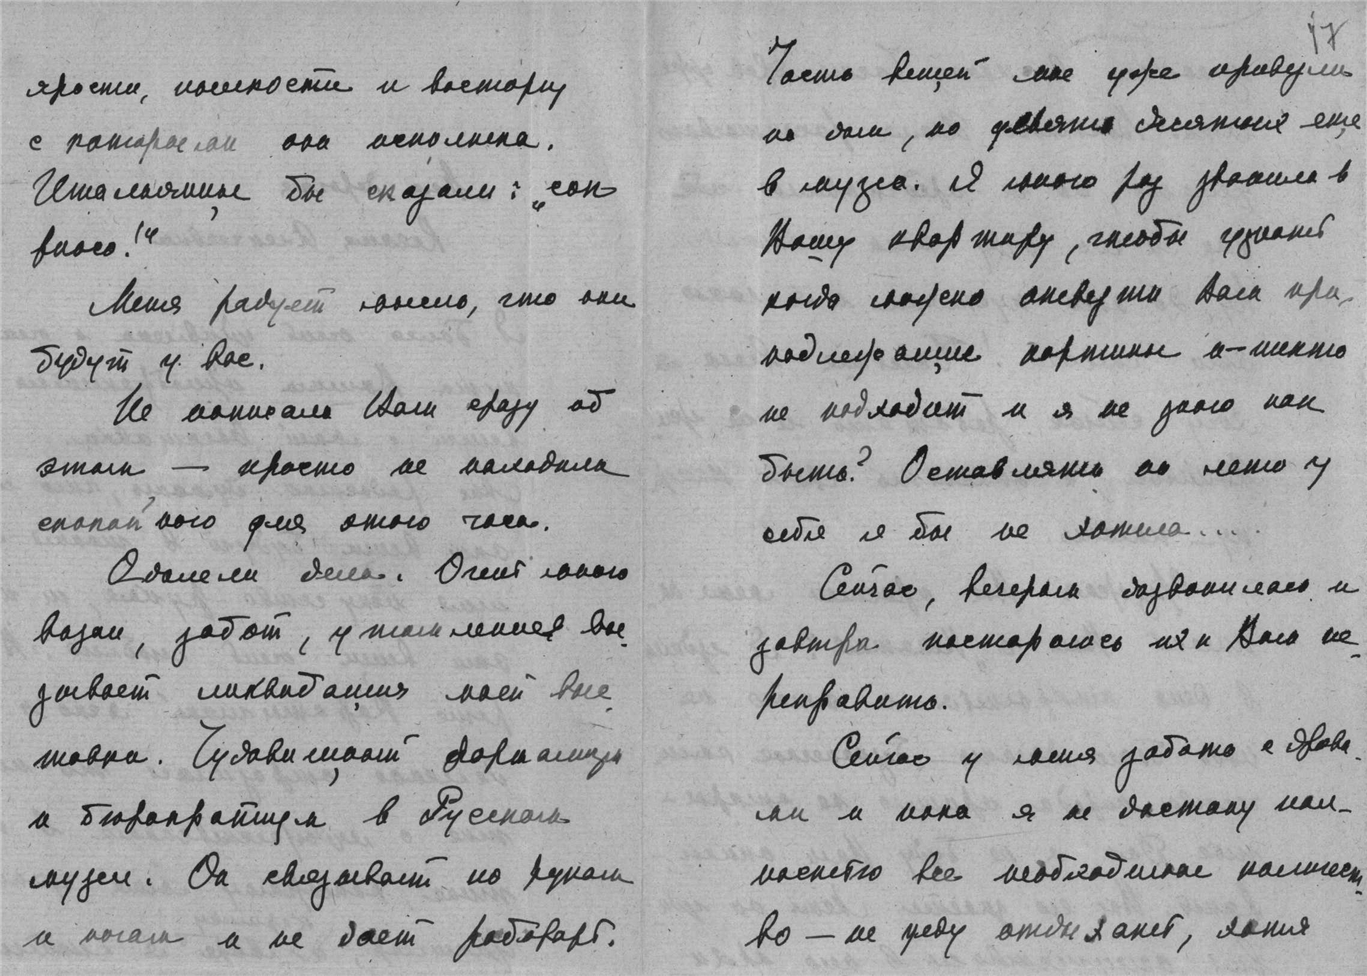 ярости, нежности и восторгу
с которыми они исполнены.
Итальянцы бы сказали: „con
fuoco!“
Меня радует мысль, что они
будут у вас.
Не написала Вам сразу об
этом — просто не находила
спокойного для этого часа.
Одолели дела. Очень много
возни, забот, утомления вы-
зывает ликвидация моей выс-
тавки. Чудовищный формализм
и бюрократизм в Русском
музее. Он связывает по рукам
и ногам и не дает работать.
17
Часть вещей мне уже привезли
на дом, но девять десятых еще
в музее. Я много раз звонила в
Вашу квартиру, чтобы узнать
когда можно отвезти Вам при-
надлежащие картины и — никто
не подходит и я не знаю как
быть? Оставлять на лето у
себя я бы не хотела....
Сейчас, вечером дозвонилась и
завтра постараюсь их к Вам пе-
реправить.
Сейчас у меня забота с дрова-
ми и пока я не достану пол-
ностью все необходимое количест-
во — не уеду отдыхать, хотя